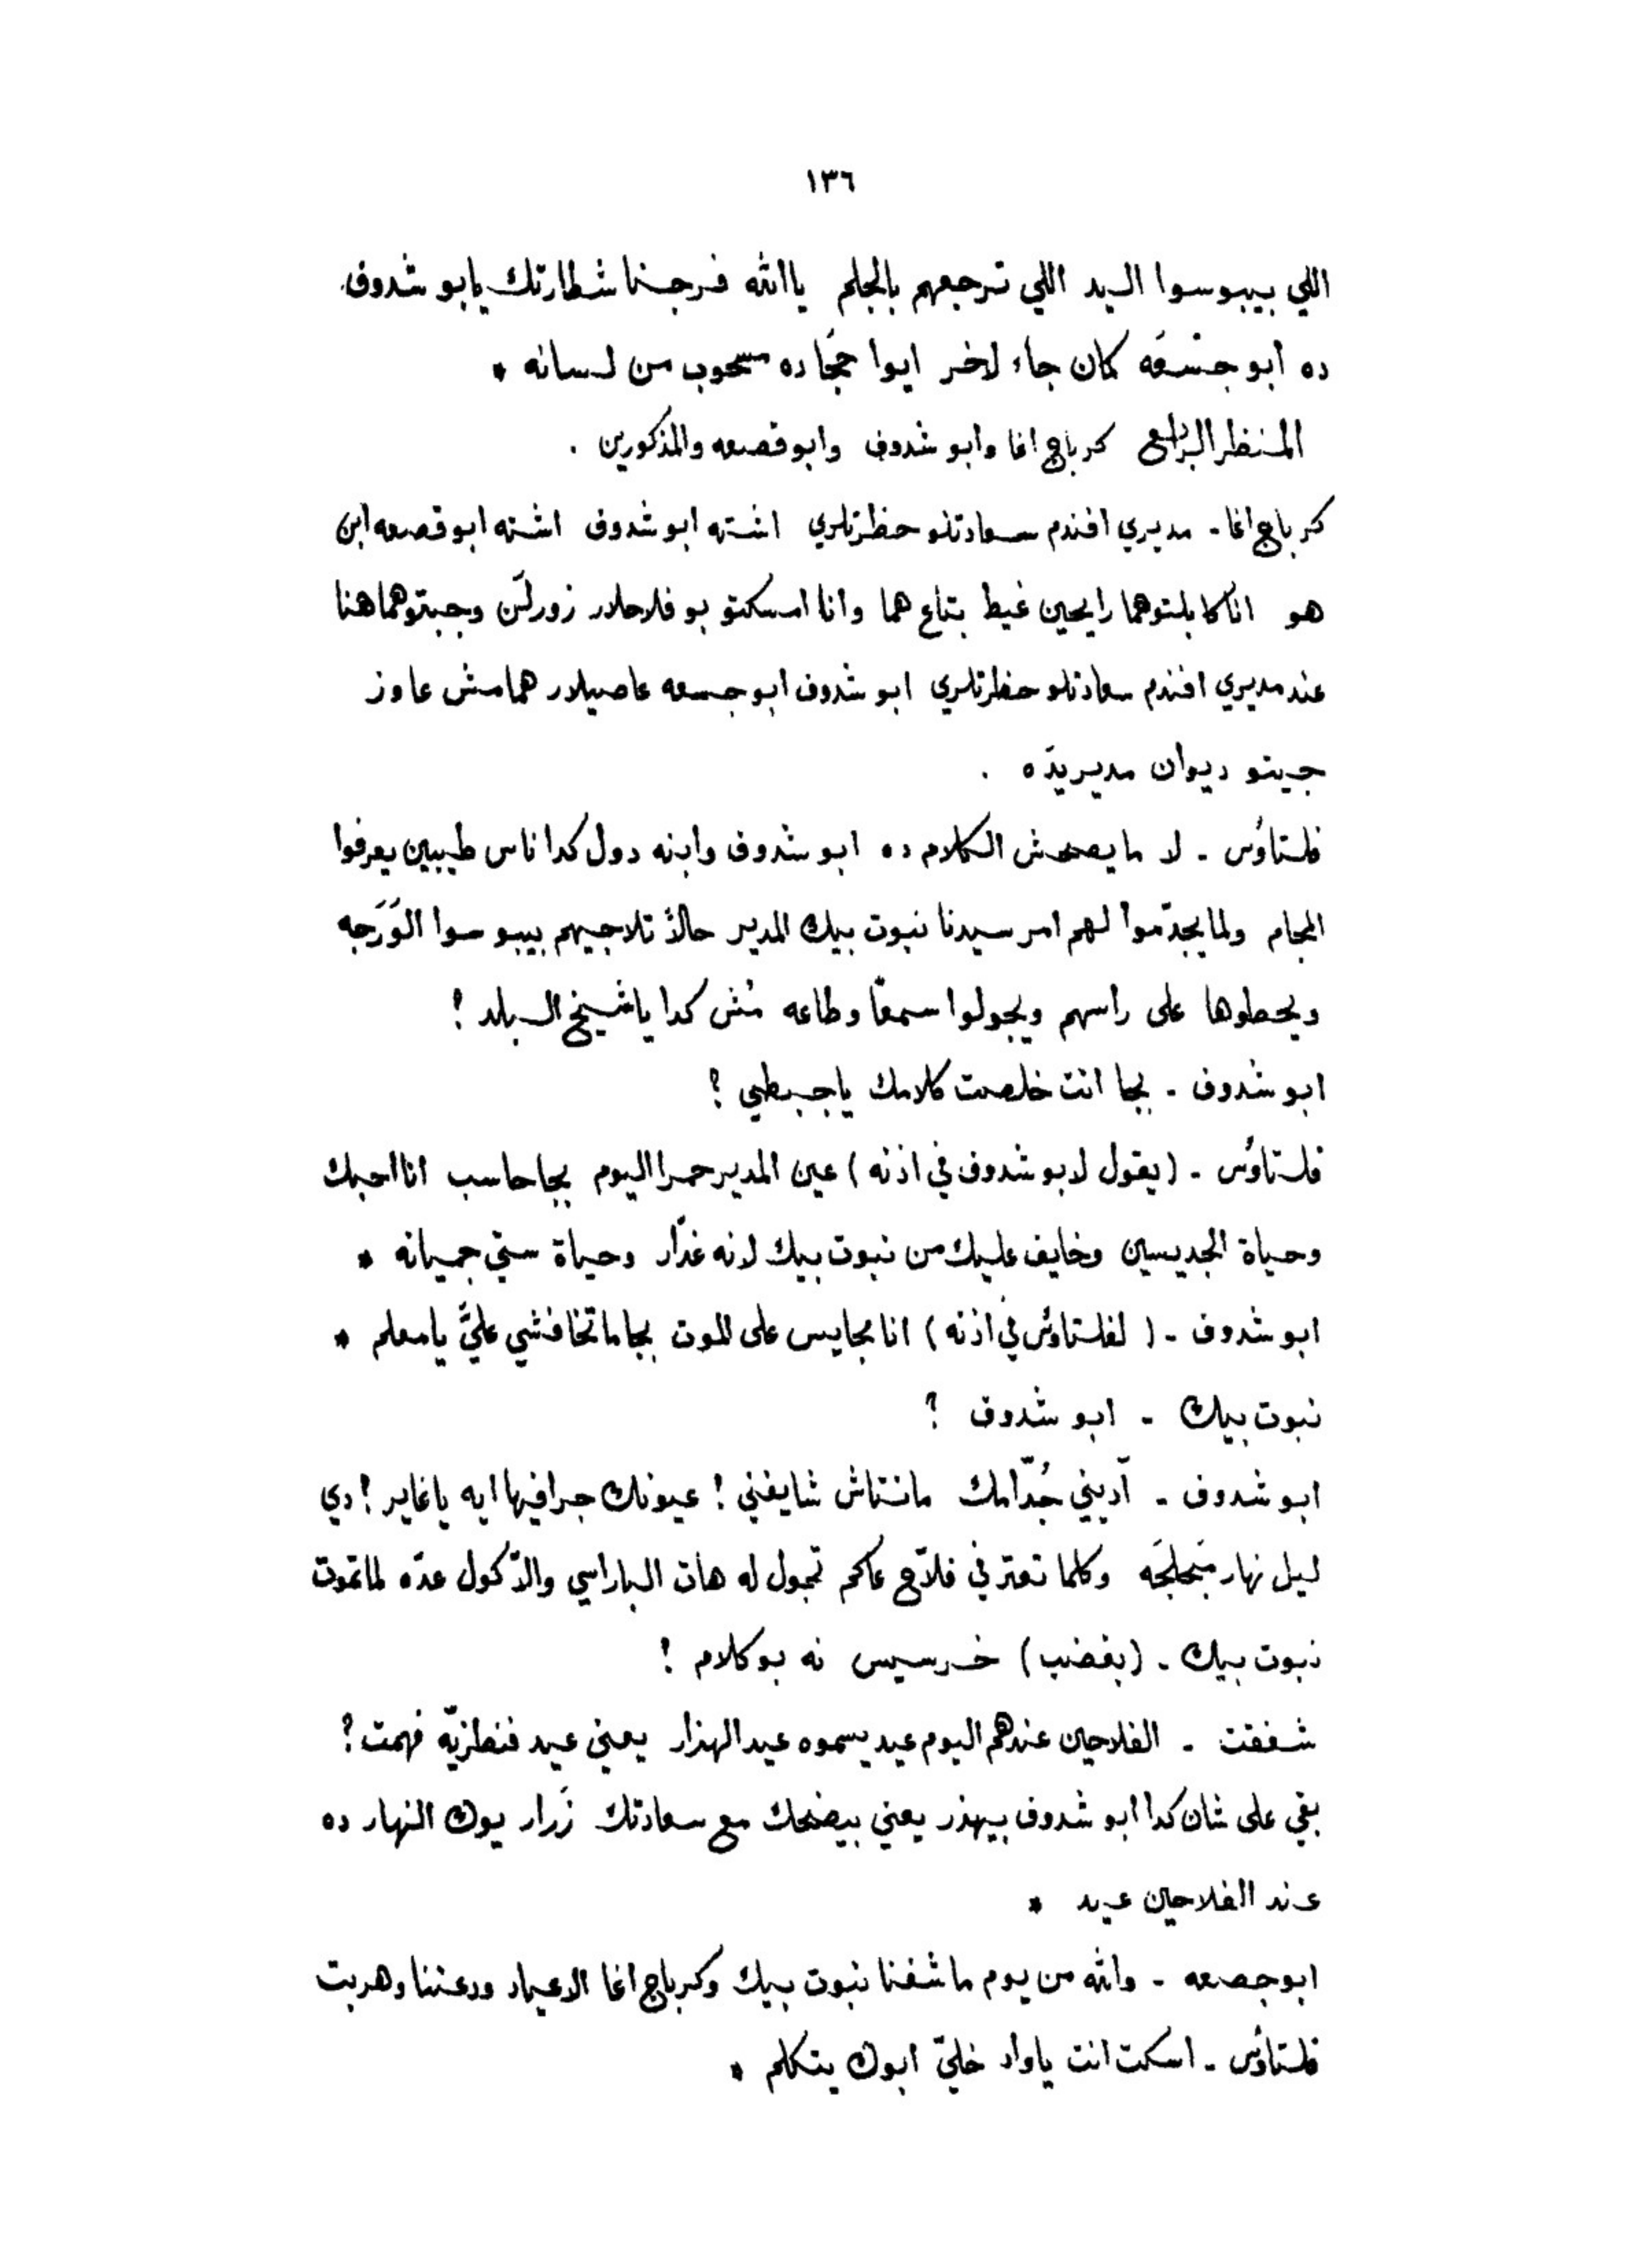 ١٣٦
اللي بيبوسوا اليد اللي ترجعهم بالجلم ياالله فرجنا شطارتك يابو شدوف.
ده ابو جشعه كمان جاء لاخر ايوا حجا ده مسحوب من لسانه *
المنظر الرابع كرباج اغا وابو شدوف وابو قصعه والمذكورين .
كرباج اغا - مديري افندم سعادتلو حظرتلري اشته ابو شدوف اشته ابو قصعه ابن
هو انا كابلتوهما رايحين غيط بتاع هما وانا امسكتو بو فلاحلار زورلَن وجبتوهما هنا
عند مديري افندم سعادتلو حظرتلري ابو شدوف ابو جسعه عاصيلار هما مش عاوز
جيتو ديوان مديريدَه .
فلتاؤس - لا ما يصحش الكلام ده ابو شدوف وابنه دول كدا ناس طيبين يعرفوا
المجام ولما يجدّموا لهم امر سيدنا نبوت بيك المدير حالاً تلاجيهم بيبوسوا الوَرَجه
ويحطوها على راسهم ويجولوا سمعًا وطاعه مُش كدا ياشيخ البلد !
ابو شدوف - بجا انت خلصت كلامك ياجبطي ؟
فلتاؤس - (يقول لابو شدوف في اذنه) عين المدير حمرا اليوم بجا حاسب انا احبك
وحياة الجديسين وخايف عليك من نبوت بيك لانه غدّار وحياة ستي جميانه *
ابو شدوف - ( لفلتاؤس في اذنه ) انا مجايس على الموت بجا ما تخافشي عليَّ يامعلم *
نبوت بيك - ابو شدوف ؟
ابو شدوف - آديني جُدّامك مانتاش شايفني ! عيونك جرا فيها ايه ياغاير ! دي
ليل نهار مبَحلَجَه وكلما تعتر في فلاّح عاكم تجول له هات الباراسي والاّ كول عدَّه لما تموت
نبوت بيك - (بغضب) خرسيس نه بو كلام !
شفقت - الفلاحين عندهم اليوم عيد يسموه عيد الهزار يعني عيد فنطزيّه فهمت ؟
بقي على شان كدا ابو شدوف بيهذر يعني بيضحك مع سعادتك زَرار يوك النهار ده
عند الفلاحين عيد *
ابو جصعه - والله من يوم ما شفنا نبوت بيك وكرباج اغا الاعياد ودعتنا وهربت
فلتاؤس - اسكت انت ياواد خليّ ابوك يتكلم *